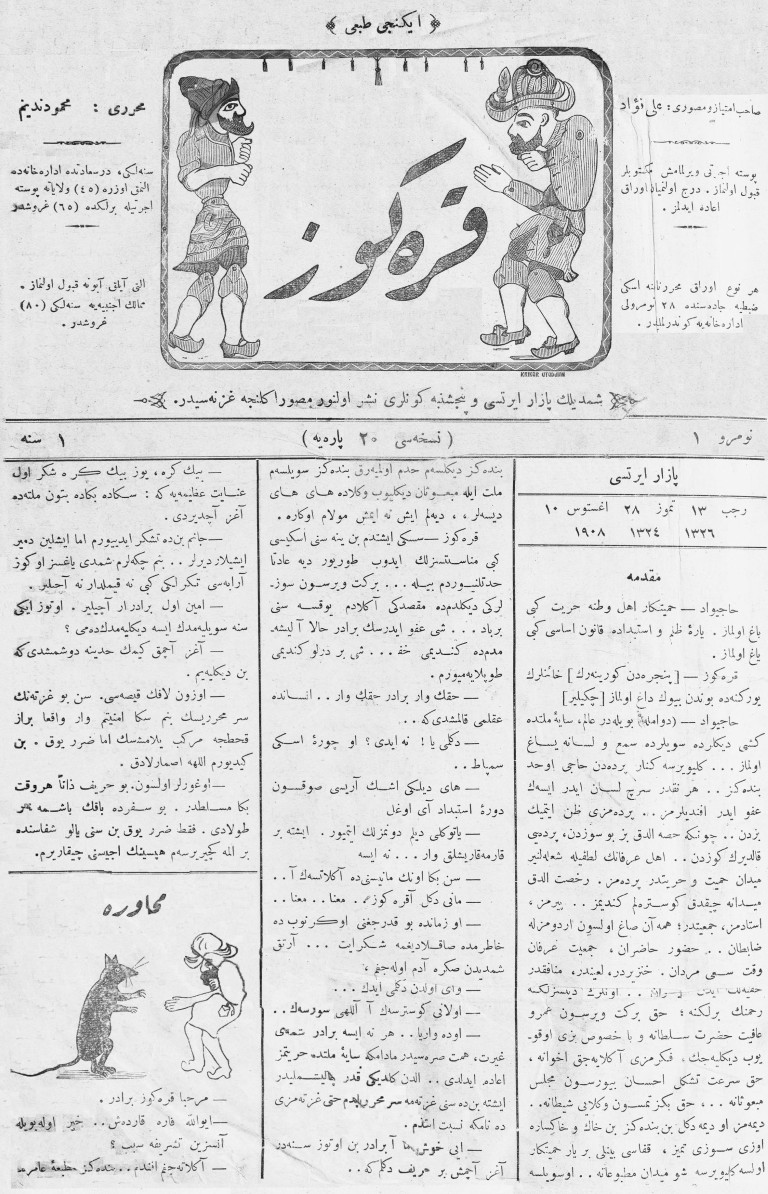 ایكنجی طبعی
صاحب امتیاز و مصوری : علی فؤاد
پوسته اجرتی ویرلمامش مكتوبلر
قبول اولنماز . درج اولنمیان اوراق
اعاده ایدلمز .
هر نوع اوراق محررنامنه اسكی
ضبطیه جاده‌سنده ٢٨ نومرولی
اداره‌خانه‌یه كوندرلملیدر .
قره كوز
محرری : محمود ندیم
سنه‌لكی ، درسعادتده اداره‌خانه‌ده
آلنمق اوزره (٤٥) ولایاته پوسته
اجرتیله برلكده (٦٥) غروشدر
التی آیلق آبونه قبول اولنماز .
ممالك اجنبیه‌یه سنه‌لكی (٨٠)
غروشدر .
شمدیلك پازار ایرتسی و پنجشنبه كونلری نشر اولنور مصور اكلنجه غزته‌سیدر .
نومرو ١
( نسخه‌سی ٢٠ پاره‌یه )
١ سنه
پازار ایرتسی
رجب ١٣ تموز ٢٨ اغستوس ١٠
١٣٢٦ ١٣٢٤ ١٩٠٨
مقدمه
حاجیواد — حمیتكار اهل وطنه حریت كبی
باغ اولماز . یارهٔ ظلم و استبداده قانون اساسی كبی
یاغ اولماز .
قره‌كوز — [پنجره‌دن كورینه‌رك] خائنلرك
یوركنه‌ده بوندن بیوك داغ اولماز [چكیلیر]
حاجیواد — (دوامله) بویله‌در عالم ، سایهٔ ملتده
كشی دیكلرده سویلرده سمع و لسانه یساغ
اولماز . . . كلیویرسه كنار پرده‌دن حاجی اوحد
بنده‌كز . . هر نقدر سرچ لسان ایدر ایسه‌ك
عفو ایدر افندیلرمز . . پرده‌مزی ظن ایتمیك
بزدن . . چونكه حصه الدق بز بو سوزدن ، پرده‌یی
قالدیرك كوزدن . . اهل عرفانك لطفیله شعله‌لنیر
میدان حمیت و حریتدر پرده‌مز . رخصت الدق
میدانه چیقدق كوستره‌لم كندیمز . . پیرمز ،
استادمز ، جمعیتدر ؛ همه آن صاغ اولسون اردومزله
ضابطان . . حضور حاضران ، جمعیت عرفان
وقت سعی مردان . خنزیردر ، لعیندر ، منافقدر
رحمتك بركتنه ؛ حق بركت ویرسون عمرو
عافیت حضرت سلطانه و با خصوص بزی اوقو-
یوب دیكلیه‌جك ، فكرمزی آكلایه‌جق اخوانه ،
حق سرعت تشكل احسان بیورسون مجلس
مبعوثانه . . ، حق بكزتمسون وكلایی شیطانه . .
دیمه‌مز او دیمه دكل بن بنده‌كز بن خاك و خاكساره
اوزی سوزی تمیز ، قفاسی بیتلی بر یار حمیتكار
اولسه كلیویرسه شو میدان مطبوعاته . . او سویلسه
بنده‌كز دیكلسه‌م حدم اولمیه‌رق بنده‌كز سویلسه‌م
ملت ایله مبعوثان دیكلیوب وكلاده های های
دیسه‌لر ، ، دیه‌لم ایش نه ایمش مولام اوكاره .
قره‌كوز — سسكی ایشتدم بن ینه سنی اسكیسی
كبی مناسبتسزلك ایدوب طوریور دیه عادتا
حدتلنیوردم بیله . . . بركت ویرسون سوز-
لركی دیكلدمده مقصدكی آكلادم یوقسه سنی
برباد . . . شی عفو ایدرسك برادر حالا آلیشه-
مدم‌ده كندیمی خفـ . . . شی بر درلو كندیمی
طوپلایه‌میورم .
— حقك وار برادر حقك وار . . انسانده
عقلمی قالمشدی كه . .
— دكلمی یا ! نه ایدی ؟ او جورهٔ اسكی
سمپاط . .
— های دیلكی اشك آریسی صوقسون
دورهٔ استبداد آی اوغل
— یاتوكلی دیلم دونمزلك ایتمیور . ایشته بر
قارمه‌قاریشلق وار . . . نه ایسه
— سن بكا اونك مانیسنی‌ده آكلاتسه‌ك آ . .
— مانی دكل آقره كوزم . . معنا . . معنا . .
— او زمانده بو قدرجغنی اوكرنوب ده
خاطرمده صاقلادیغمه شكرایت . . . آرتق
شمدیدن صكره آدم اوله‌جغم ،
— وای اولدن دكلمی ایدك . . .
— اولانی كوسترسه‌ك آ اللهی سورسه‌ك . .
— اوده واریا . . هر نه ایسه برادر شمدی
غیرت ، همت صره‌سیدر مادامكه سایهٔ ملتده حریتمز
اعاده ایدلدی . . الدن كلدیكی قدر چالیشملیدر
ایشته بن‌ده سنی غزته‌مه سر محرر یاپدم حتی غزته‌مزی
ده نامكه نسبت ایتدم .
— ایی خوش اما آ برادر بن اوتوز سنه‌در
آغز آچمش بر حریف دكلم كه . .
— بیك كره ، یوز بیك كره شكر اول
عنایت عظیمه‌یه كه : سكاده بكاده بتون ملته‌ده
آغز آچدیردی .
— جانم بن‌ده تشكر ایدییورم اما ایشلین دمیر
ایشیلار دیرلر . . بنم چكه‌لرم شمدی یاغسز اوكوز
آرابه‌سی تكرلكی كبی نه قیملدار نه آچیلیر .
— امین اول برادر آر آچیلیر . اوتوز ایكی
سنه سویلیه‌مدك ایسه دیكلیه‌مدك‌ده‌می ؟
— آغز آچمق كیمك حدینه دوشمشدی كه
بن دیكلیه‌یم .
— اوزون لافك قیصه‌سی . سن بو غزته‌نك
سر محرریسك بنم سكا امنیتم وار واقعا براز
قحطجه مركب یلامشسك اما ضرر یوق . بن
كیدیورم اللهه اصمارلادق .
— اوغورلر اولسون . بو حریف ذاتاً هر وقت
بكا مسلطدر . بو سفرده باقك باشمه نلر
طولادی . فقط ضرر یوق بن سنی یالو شفاسنده
بر المه كچیریرسه‌م هپسینك اجیسنی چیقاریرم .
محاوره
— مرحبا قره‌كوز برادر .
— ایوالله فاره قارده‌ش . . خیر اوله بویله
آنسزین تشریفه سبب ؟
— آكلاته‌جغم افندم . . بنده‌كز مطبعهٔ عامره‌ده